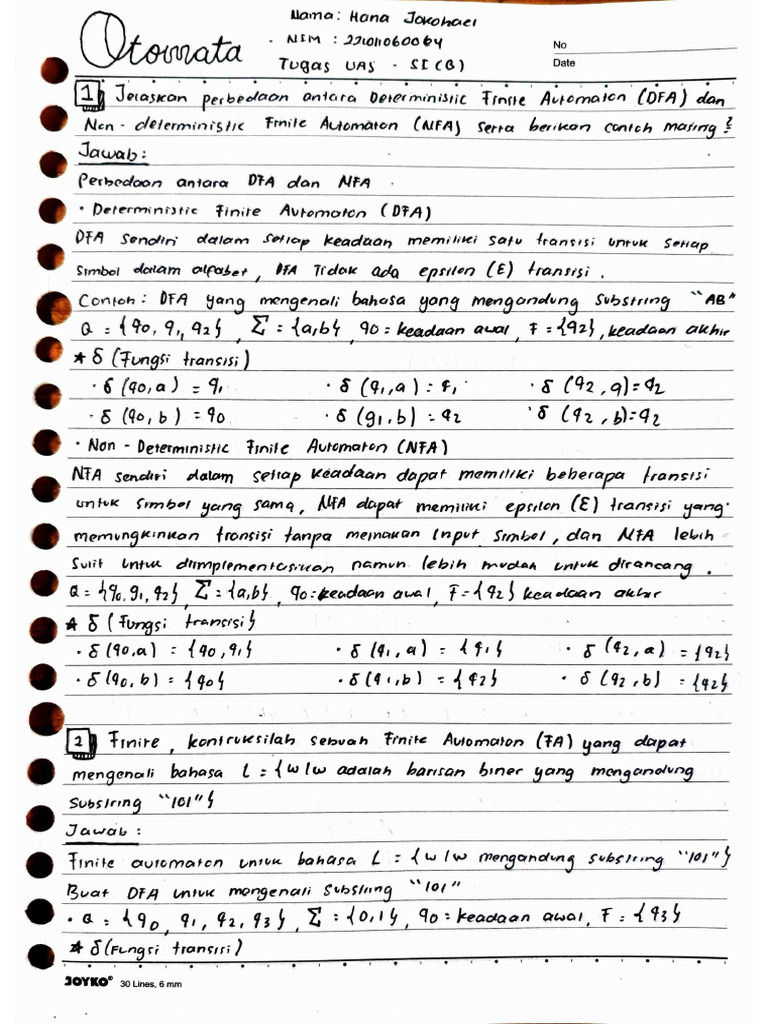 Otomata
Nama: Hana Jokohael
• NIM : 22101060064
Tugas UAS - SI (B)
No
Date
1 Jelaskan perbedaan antara Deterministic Finite Automaton (DFA) dan
Non-deterministic Finite Automaton (NFA) serta berikan contoh masing²
Jawab:
Perbedaan antara DFA dan NFA .
• Deterministic Finite Automaton (DFA)
DFA sendiri dalam setiap keadaan memiliki satu transisi untuk setiap
simbol dalam alfabet, DFA Tidak ada epsilon (ε) transisi.
Contoh: DFA yang mengenali bahasa yang mengandung substring "AB"
Q = {q0, q1, q2}, Σ = {a,b}, q0 = keadaan awal, F = {q2}, keadaan akhir
★ δ (Fungsi transisi)
• δ (q0,a) = q1 • δ (q1,a) = q1 • δ (q2,a) = q2
• δ (q0,b) = q0 • δ (q1,b) = q2 • δ (q2,b) = q2
• Non-Deterministic Finite Automaton (NFA)
NFA sendiri dalam setiap keadaan dapat memiliki beberapa transisi
untuk simbol yang sama, NFA dapat memiliki epsilon (ε) transisi yang
memungkinkan transisi tanpa memakan input simbol, dan NFA lebih
sulit untuk diimplementasikan namun lebih mudah untuk dirancang.
Q = {q0,q1,q2}, Σ = {a,b}, q0 = keadaan awal, F = {q2} keadaan akhir
★ δ (Fungsi transisi}
• δ(q0,a) = {q0,q1} • δ (q1,a) = {q1} • δ (q2,a) = {q2}
• δ(q0,b) = {q0} • δ(q1,b) = {q2} • δ (q2,b) = {q2}
2 Finite, kontruksilah sebuah Finite Automaton (FA) yang dapat
mengenali bahasa L = {w/w adalah barisan biner yang mengandung
substring "101"}
Jawab:
Finite automaton untuk bahasa L = {w/w mengandung substring "101"}
Buat DFA untuk mengenali substring "101"
• Q = {q0, q1, q2, q3}, Σ = {0,1}, q0 = keadaan awal, F = {q3}
★ δ (Fungsi transisi)
JOYKO® 30 Lines, 6 mm